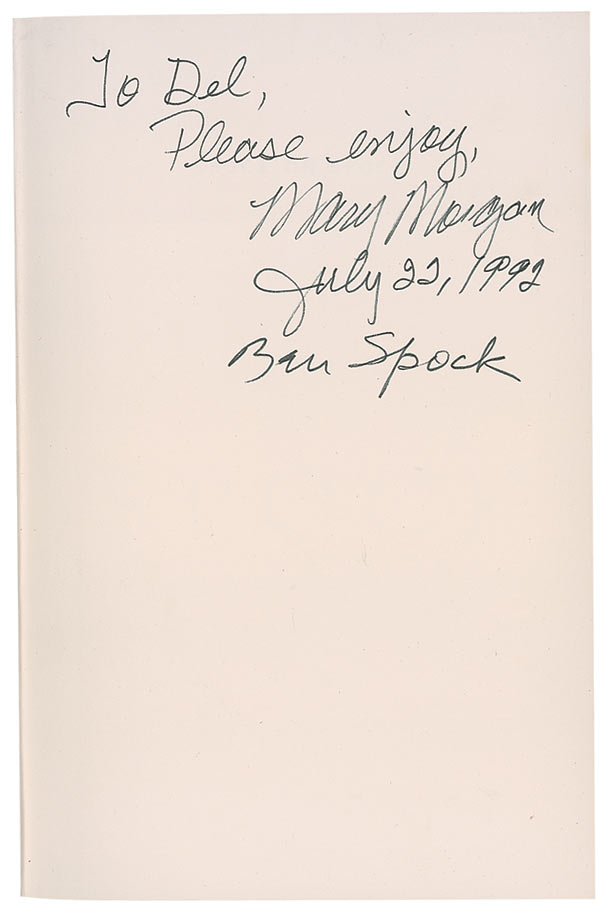 To Del,
Please enjoy,
Mary Morgan
July 22, 1992
Ben Spock